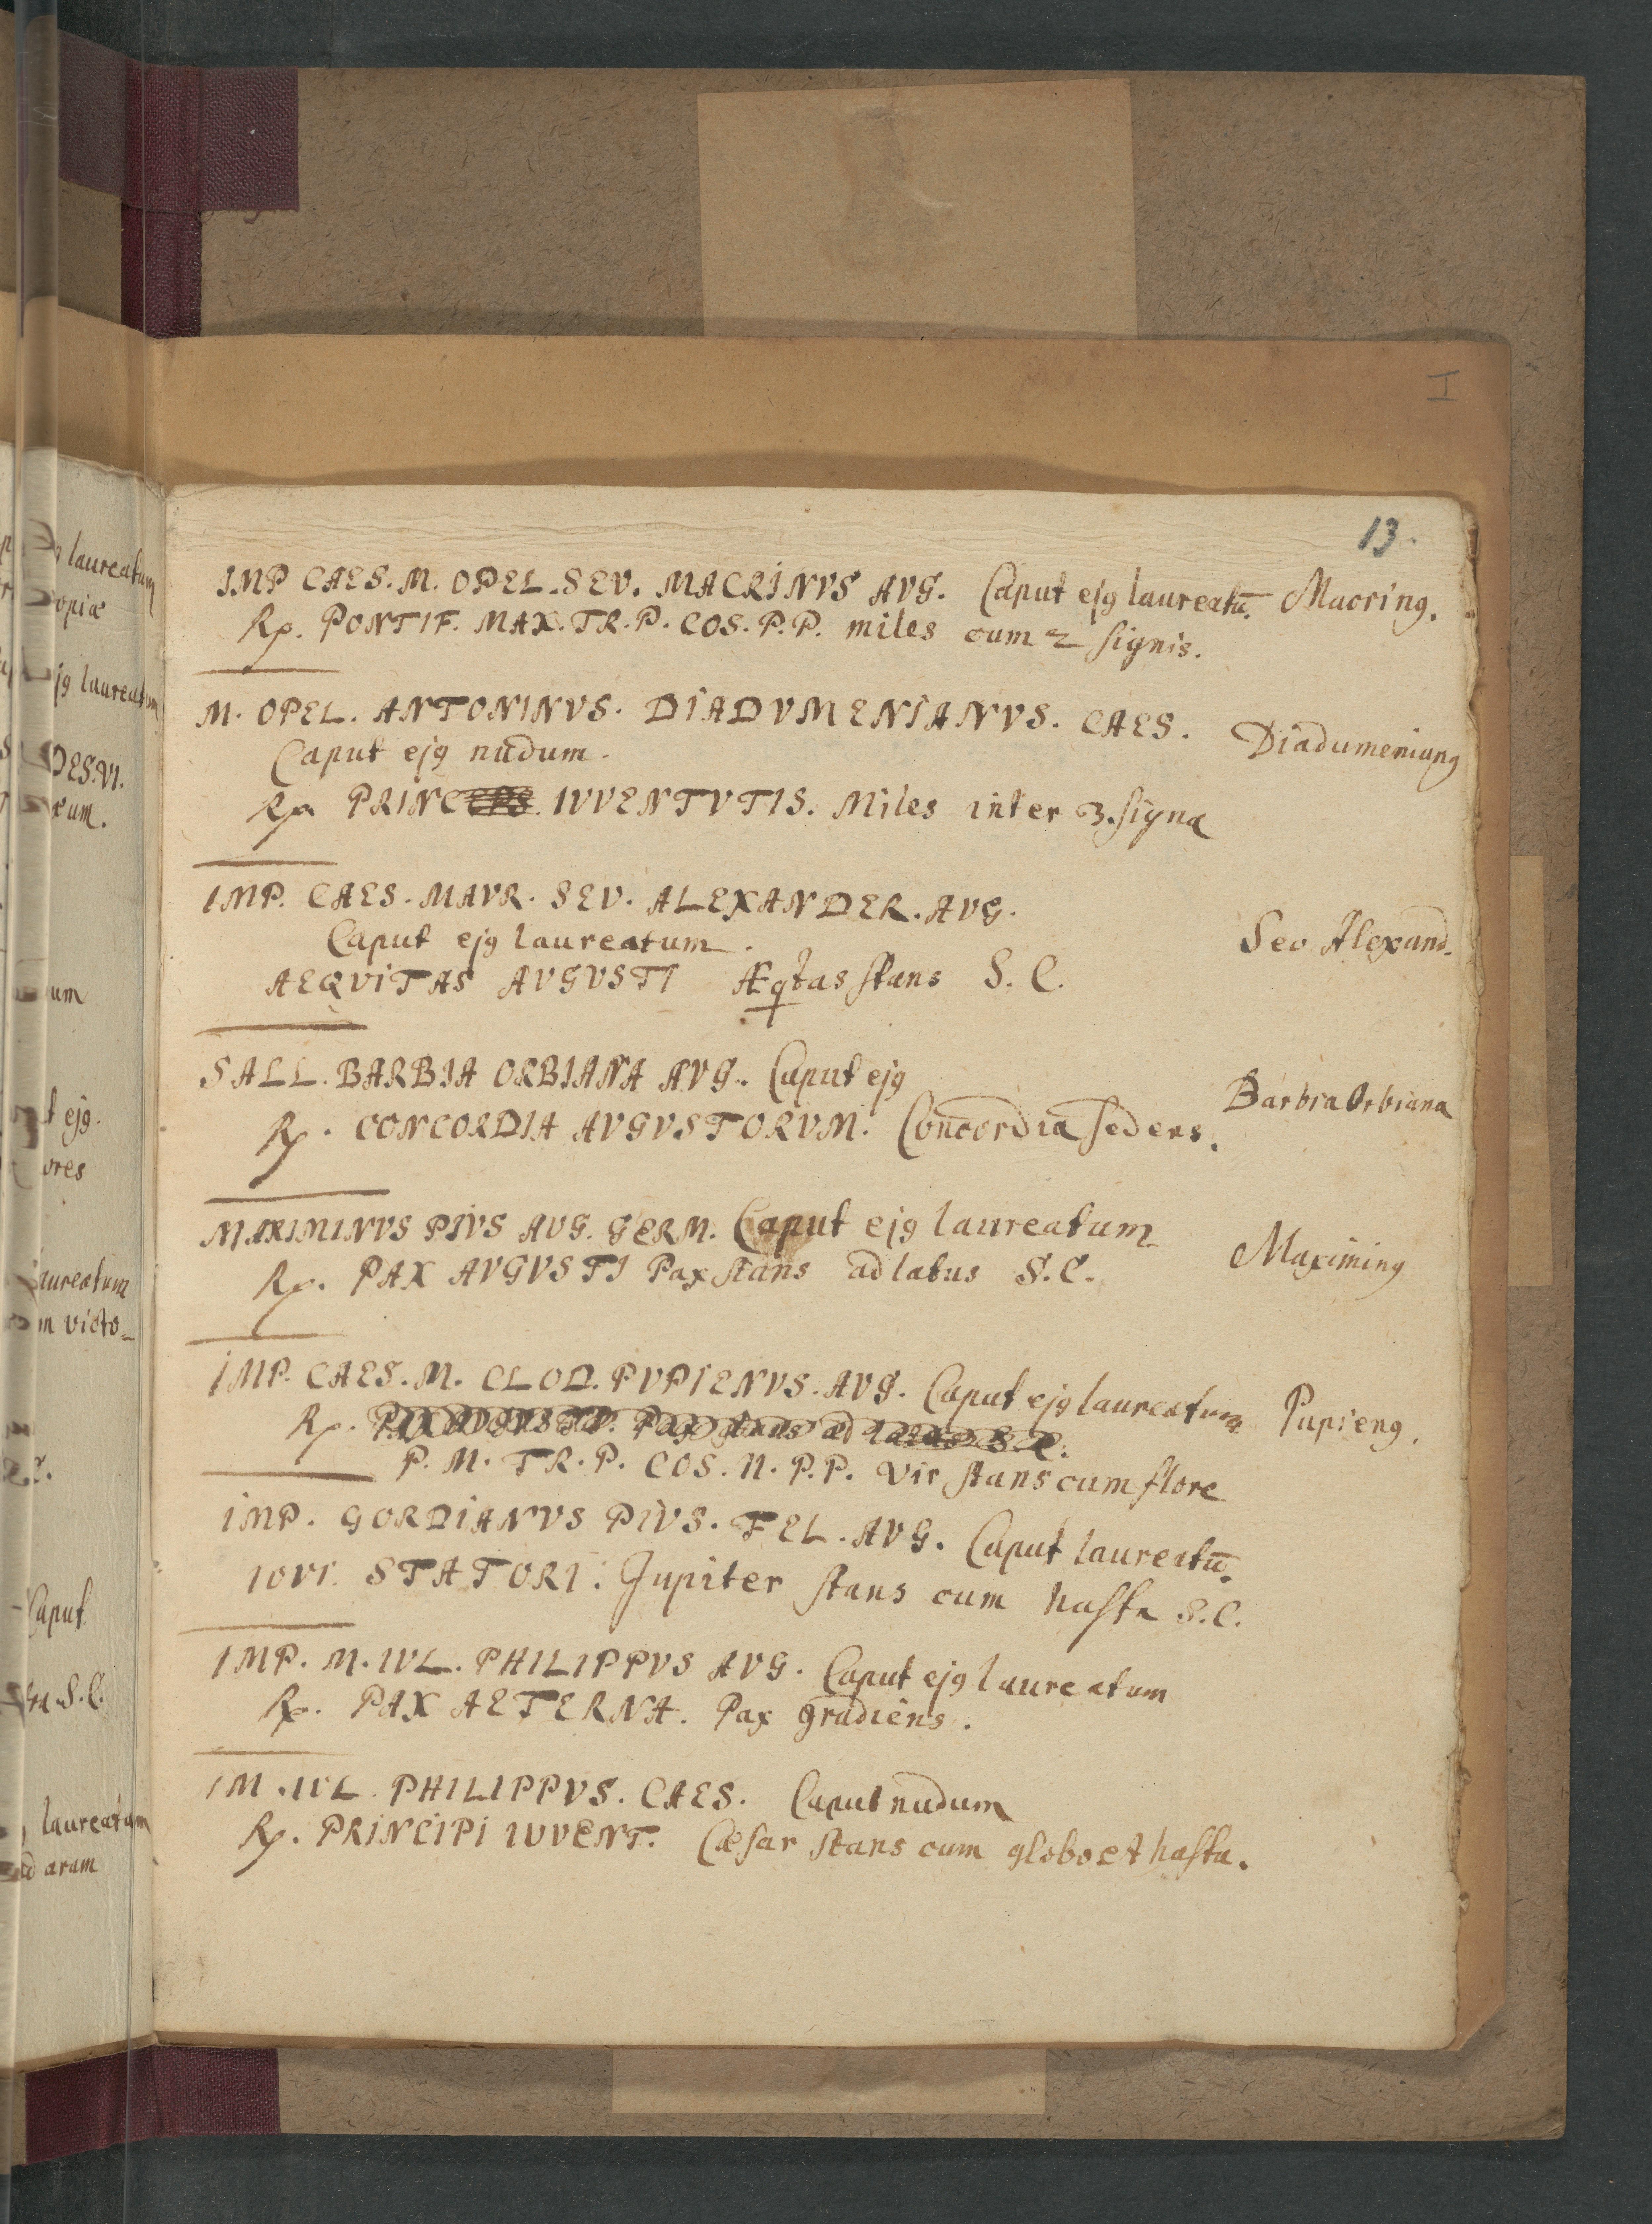 I
13.
IMP CAES. M. OPEL. SEV. MACRINVS AVG. Caput ejꝰ laureatū. Macrinꝰ.
Rp. PONTIF. MAX. TR. P. COS. P.P. miles cum 2 signis.
M. OPEL. ANTONINVS. DIADVMENIANVS. CAES. Diadumenianꝰ
Caput ejꝰ nudum.
Rp. PRINCEPS IVVENTVTIS. Miles inter 3. signa
IMP. CAES. MAVR. SEV. ALEXANDER. AVG.
Caput ejꝰ laureatum. Sev. Alexand.
AEQVITAS AVGVSTI Æqtas stans S. C.
SALL. BARBIA ORBIANA AVG. Caput ejꝰ Barbia Orbiana
Rp. CONCORDIA AVGVSTORVM. Concordia sedens.
MAXIMINVS PIVS AVG. GERM. Caput ejꝰ laureatum Maximinꝰ
Rp. PAX AVGVSTI Pax stans ad latus S. C.
IMP. CAES. M. CLOD. PVPIENVS. AVG. Caput ejꝰ laureatum Pupienꝰ.
Rp. PAX AVGVSTI. Pax stans ad latus S. C.
P. M. TR. P. COS. II. P. P. Vir stans cum flore
IMP. GORDIANVS PIVS. FEL. AVG. Caput laureatū.
IOVI STATORI. Jupiter stans cum hasta S. C.
IMP. M. IVL. PHILIPPVS AVG. Caput ejꝰ laureatum
Rp. PAX AETERNA. Pax gradiens.
IM. IVL PHILIPPVS. CAES. Caput nudum
Rp. PRINCIPI IVVENT. Cæsar stans cum globo et hasta.
laureatum
opiæ
jꝰ laureatum
DES. VI.
um
ejꝰ.
ores
aureatum
m victo-
Caput
S. C.
laureatum
aram